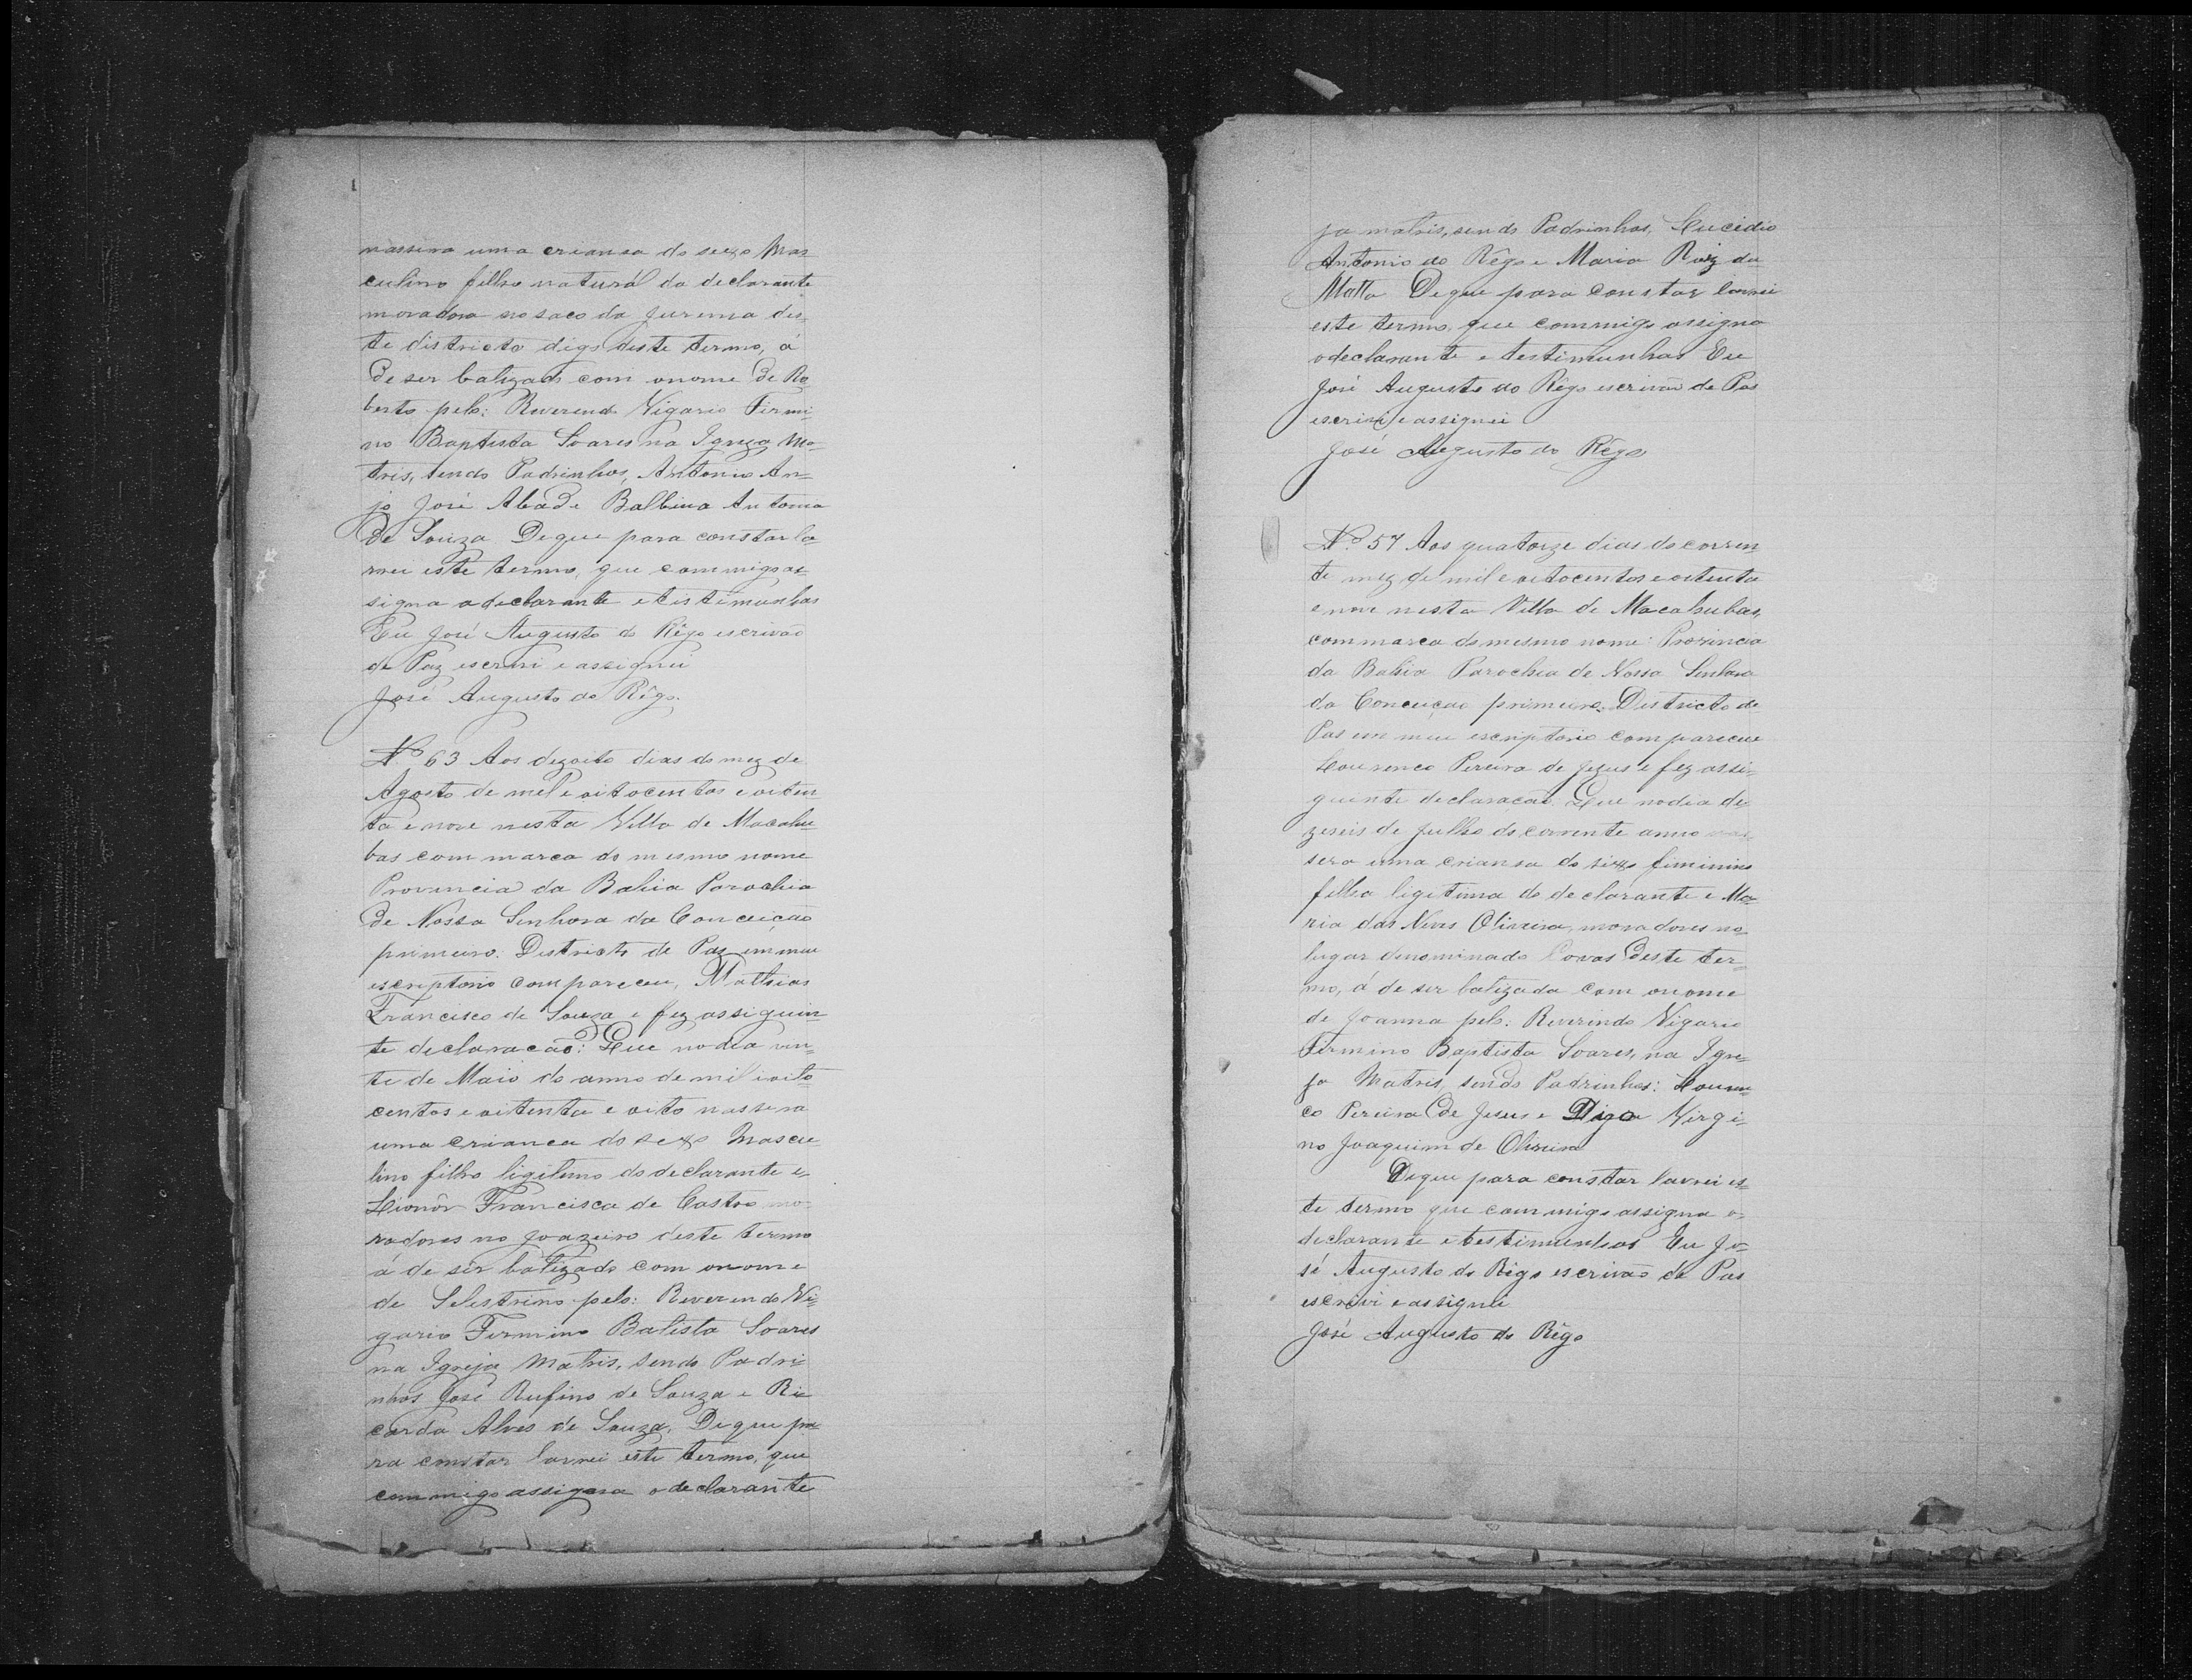 nassera uma criansa do sexo Mas
culino filho natural da declarante
moradora no saco da Jurema des-
te districto digo deste termo, á
de ser batizado com onome de Ro
berto pelo: Reverendo Vigario Firmi-
no Baptista Soares na Igreja Ma-
tris, sendo Padrinhos, Antonio An-
jo José Abade Balbina Antonia
de Souza Deque para constar la-
vrei este termo, que commigo as-
signa a declarante e testimunhas
Eu José Augusto do Rêgo escrivão
de Paz escrivi e assignei
José Augusto do Rêgo.
Nº 63 Aos dezoito dias do mez de
Agosto de mil e oitocentos e oiten
ta e nove nesta Villa de Macahu-
bas commarca do mesmo nome
Provincia da Bahia Parochia
de Nossa Senhora da Conceição
primeiro. Districto de Paz em meu
escriptorio compareceu, Mathias
Francisco de Souza e fez asseguin-
te declaracaõ: Que no dia vin-
te de Maio do anno de mil e oito
centos e oitenta e oito nassera
uma crianca do sexo Mascu
lino filho ligitimo do declarante e
Lionôr Francisca de Castro mo-
radores no Joazeiro deste termo
á de ser batizado com onome
de Selestrino pelo: Reverendo Vi-
gario Firmino Batista Soares
na Igreja Matris, sendo Padri-
nhos José Rufino de Souza e Ri-
carda Alves de Souza, Deque pa-
ra constar lavrei este termo, que
commigo assigna o declarante
ja matris, sendo Padrinhos,
Antonio do Rêgo e Maria Roiz da
Matta Deque para constar lavrei
este termo, que commigo assigna
odeclarante e testimunhas Eu
José Augusto do Rêgo escrivaõ de Pas
escrivi e assignei
José Augusto do Rêgo
Nº 57 Aos quatorze dias do corren
te mez de mil e oitocentos e oitenta
e nove nesta Villa de Macahubas,
commarca do mesmo nome: Provincia
da Bahia Parochia de Nossa Senhora
da Conceiçao primeiro. Districto de
Pas em meu escriptorio compareceu
Lourenco Pereira de Jezus e fez assi-
guinte declaracaõ. Que nodia de-
zeseis de Julho do corrente anno nas-
sera uma criansa do sexo fiminino
filha ligitima do declarante e Ma-
ria das Neves Oliveira, moradores no
lugar denominado Covas deste ter-
mo, á de ser batizada com onome
de Joanna pelo: Reverindo Vigario
Firmino Baptista Soares, na Igre-
ja Matris, sendo Padrinhos: Louren-
co Pereira de Jesus e Digo Virgi-
no Joaquim de Oliveira
Deque para constar lavrei es-
te termo que commigo assigna o-
declarante e testimunhas Eu Jo-
sé Augusto do Rêgo escrivão de Pas
escrivi e assignei
José Augusto do Rêgo